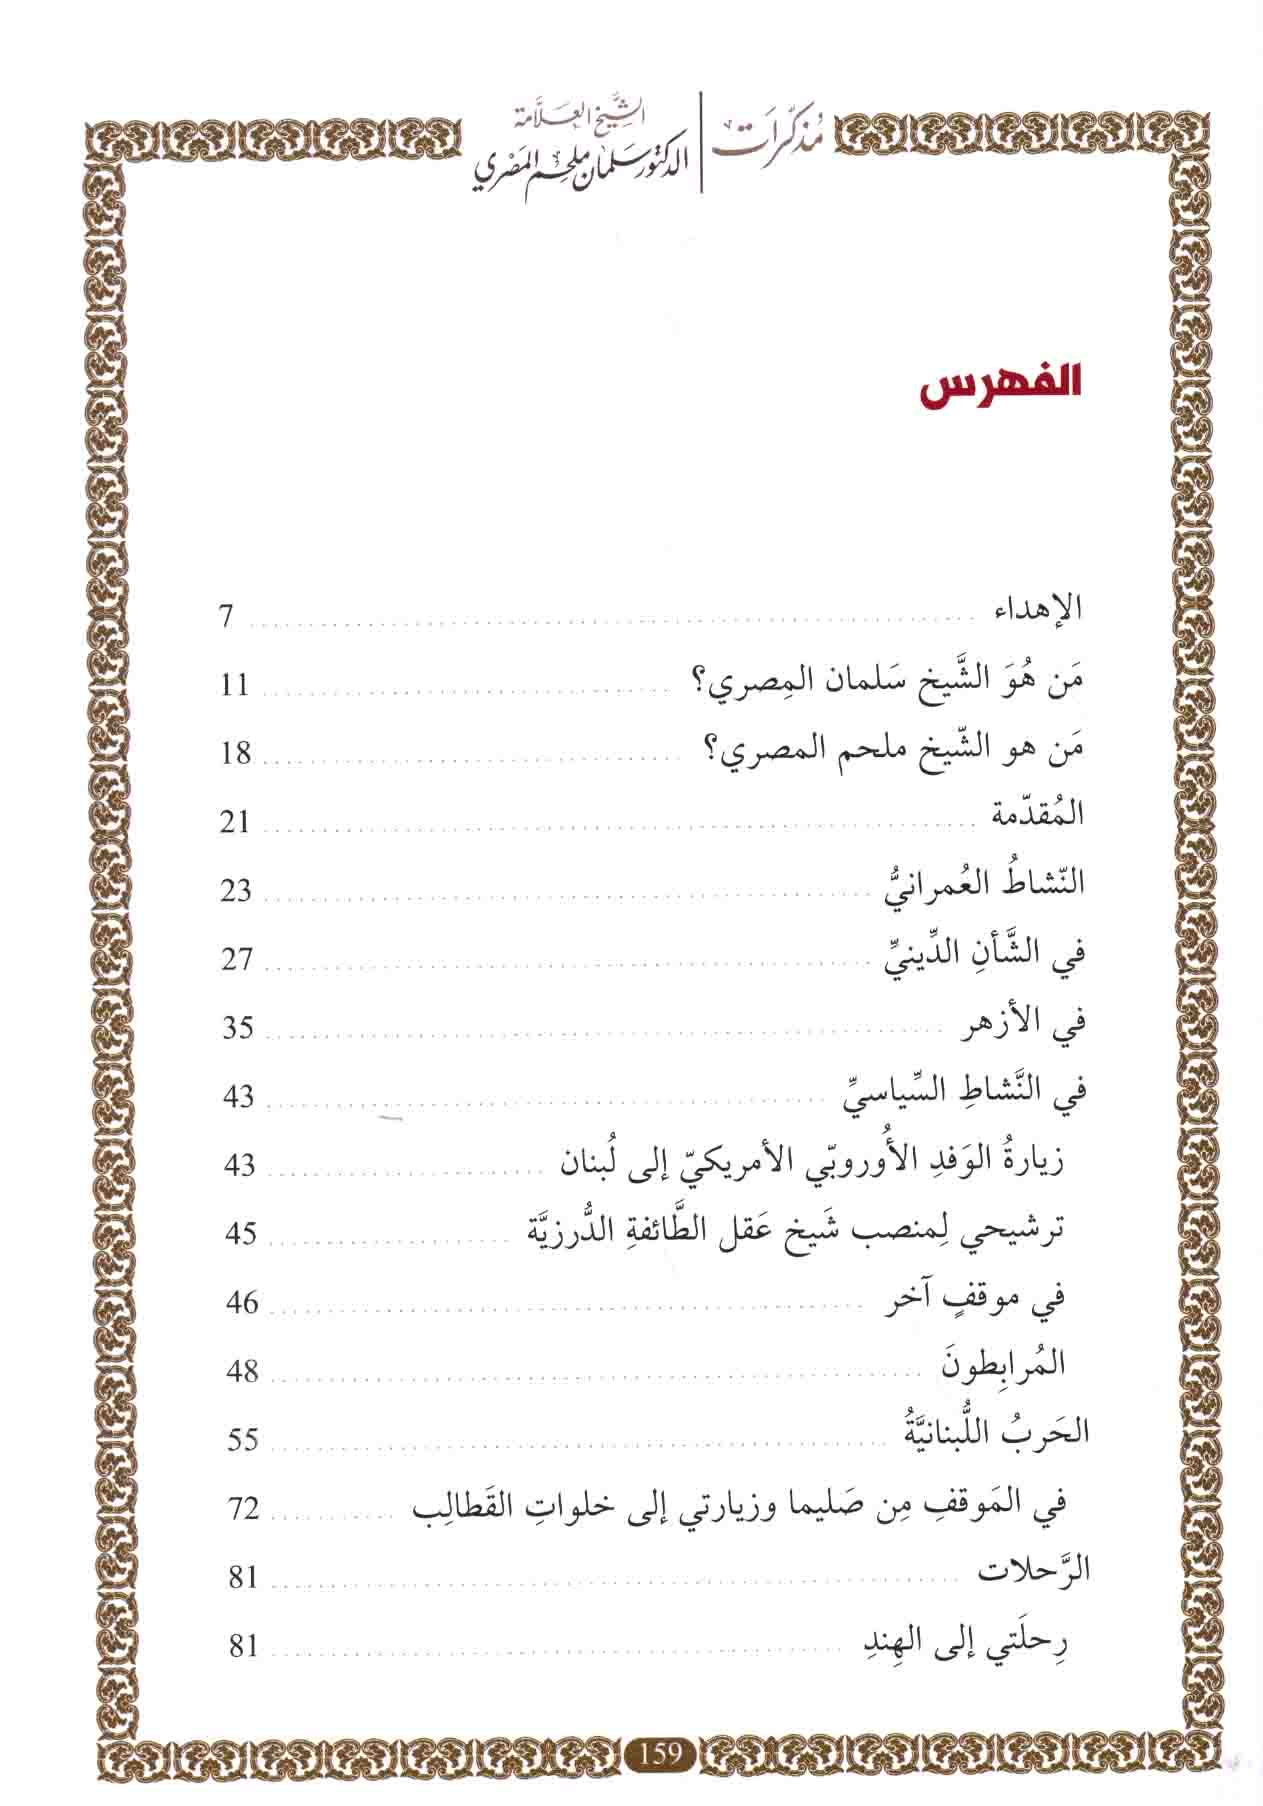 مُذكّرَات
الشَّيخ العَلَّامَة
الدكتور سَلمَان ملحِم المَصْري
الفهرس
الإهداء 7
مَن هُوَ الشَّيخ سَلمان المِصري؟ 11
مَن هو الشّيخ ملحم المصري؟ 18
المُقدّمة 21
النّشاطُ العُمرانيُّ 23
في الشَّأنِ الدِّينيِّ 27
في الأزهر 35
في النَّشاطِ السِّياسيِّ 43
زيارةُ الوَفدِ الأُوروبّي الأمريكيّ إلى لُبنان 43
ترشيحي لِمنصب شَيخ عَقل الطَّائفةِ الدُّرزيَّة 45
في موقفٍ آخر 46
المُرابِطونَ 48
الحَربُ اللُّبنانيَّةُ 55
في المَوقفِ مِن صَليما وزيارتي إلى خلواتِ القَطالِب 72
الرَّحلات 81
رِحلَتي إلى الهِندِ 81
159